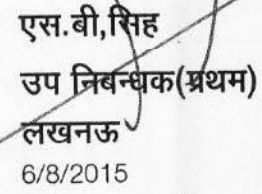 एस.बी,सिंह
उप निबन्धक(प्रथम)
लखनऊ
6/8/2015